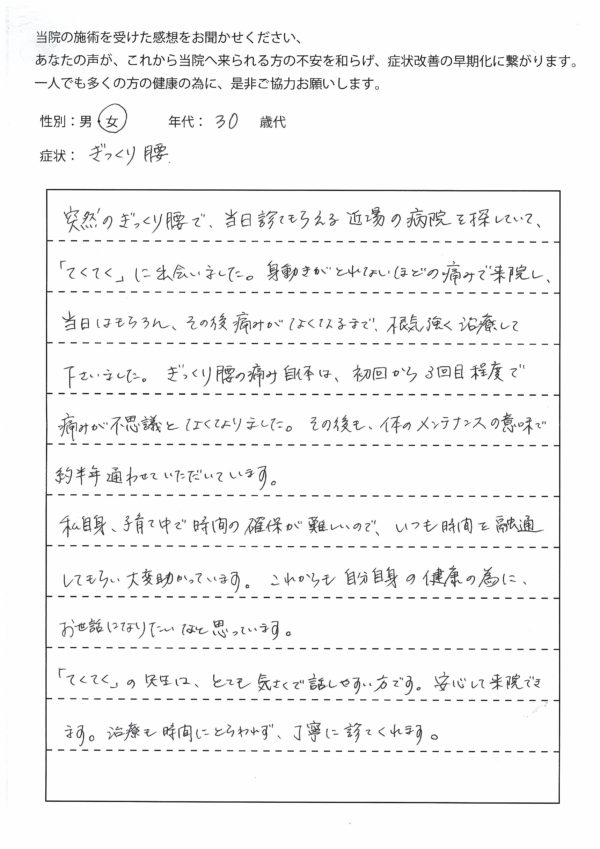 当院の施術を受けた感想をお聞かせください、
あなたの声が、これから当院へ来られる方の不安を和らげ、症状改善の早期化に繋がります。
一人でも多くの方の健康の為に、是非ご協力お願いします。
性別：男・女　年代：30　歳代
症状：ぎっくり腰
突然のぎっくり腰で、当日診てもらえる近場の病院を探していて、
「てくてく」に出会いました。身動きがとれないほどの痛みで来院し、
当日はもちろん、その後痛みがなくなるまで、根気強く治療して
下さいました。ぎっくり腰の痛み自体は、初回から3回目程度で
痛みが不思議となくなりました。その後も、体のメンテナンスの意味で
約半年通わせていただいています。
私自身、子育て中で時間の確保が難しいので、いつも時間を融通
してもらい大変助かっています。これからも自分自身の健康の為に、
お世話になりたいなと思っています。
「てくてく」の先生は、とても気さくで話しやすい方です。安心して来院でき
ます。治療も時間にとらわれず、丁寧に診てくれます。